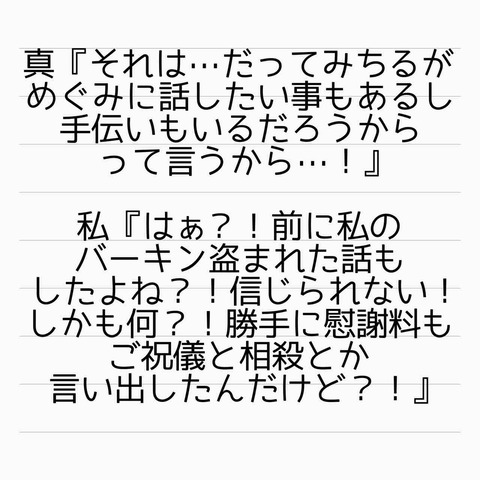 真『それは…だってみちるが
めぐみに話したい事もあるし
手伝いもいるだろうから
って言うから…！』
私『はぁ？！前に私の
バーキン盗まれた話も
したよね？！信じられない！
しかも何？！勝手に慰謝料も
ご祝儀と相殺とか
言い出したんだけど？！』